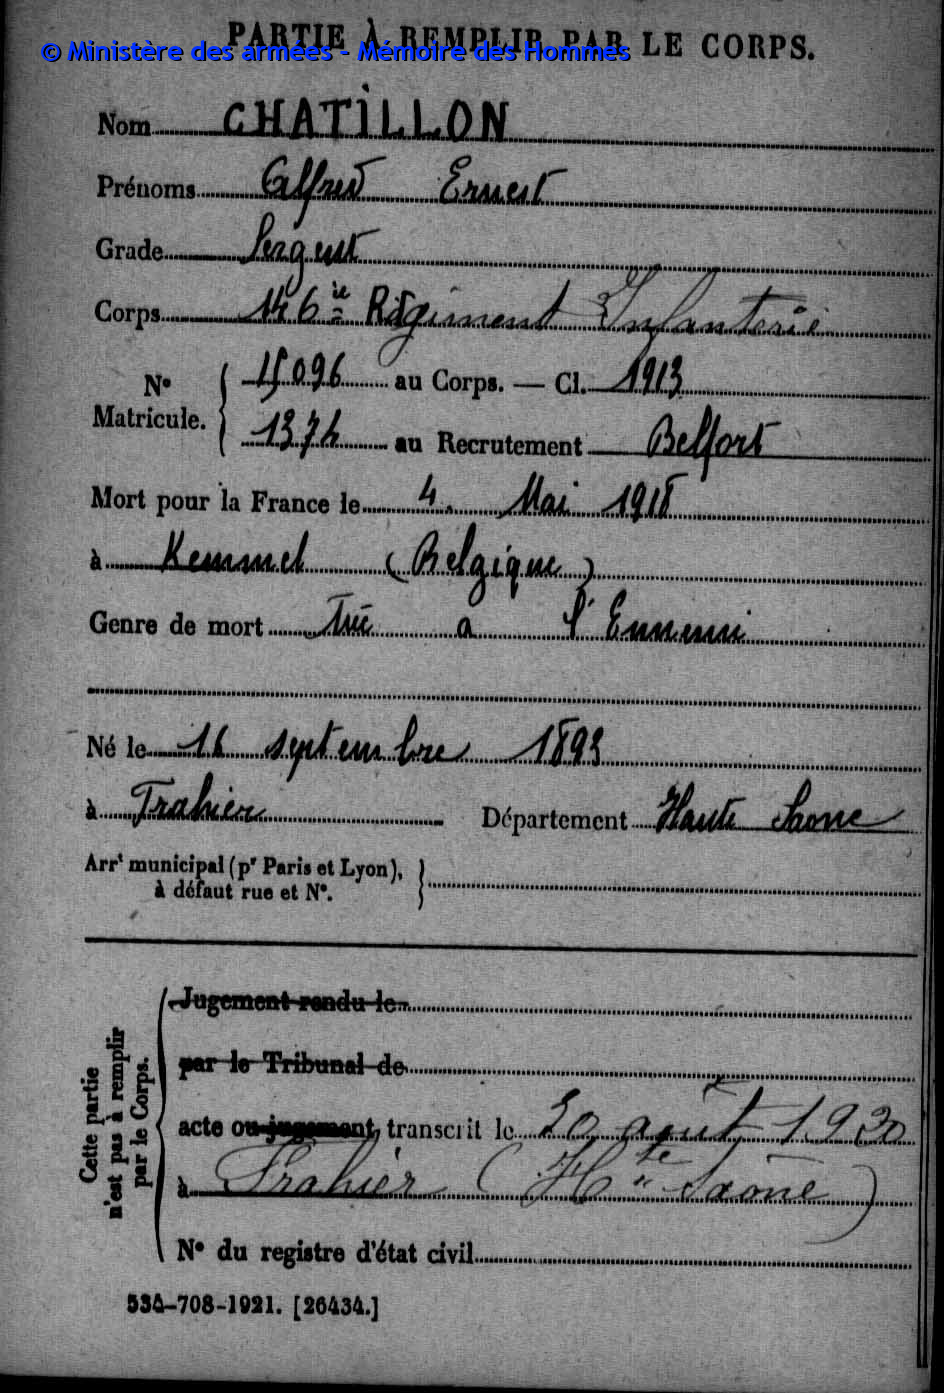 PARTIE À REMPLIR PAR LE CORPS.
© Ministère des armées - Mémoire des Hommes
Nom CHATILLON
Prénoms Alfred Ernest
Grade Sergent
Corps 146ie Régiment Infanterie
N° Matricule. { 15096 au Corps. — Cl. 1913
1374 au Recrutement Belfort
Mort pour la France le 4 Mai 1918
à Kemmel (Belgique)
Genre de mort Tué a l'Ennemi
Né le 16 septembre 1893
à Frahier Département Haute Saone
Arrt municipal (pr Paris et Lyon), à défaut rue et N°. }
Cette partie n'est pas à remplir par le Corps.
Jugement rendu le
par le Tribunal de
acte ou jugement transcrit le 20 août 1920
à Frahier (Hte Saône)
N° du registre d'état civil
534-708-1921. [26434.]